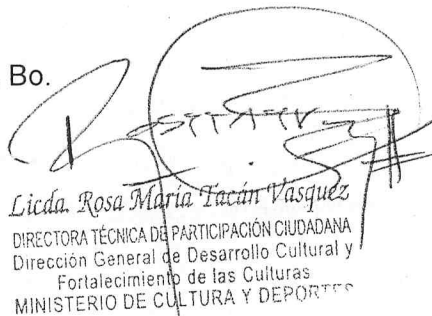 Bo.
Licda. Rosa María Tacán Vasquez
DIRECTORA TÉCNICA DE PARTICIPACIÓN CIUDADANA
Dirección General de Desarrollo Cultural y
Fortalecimiento de las Culturas
MINISTERIO DE CULTURA Y DEPORTES